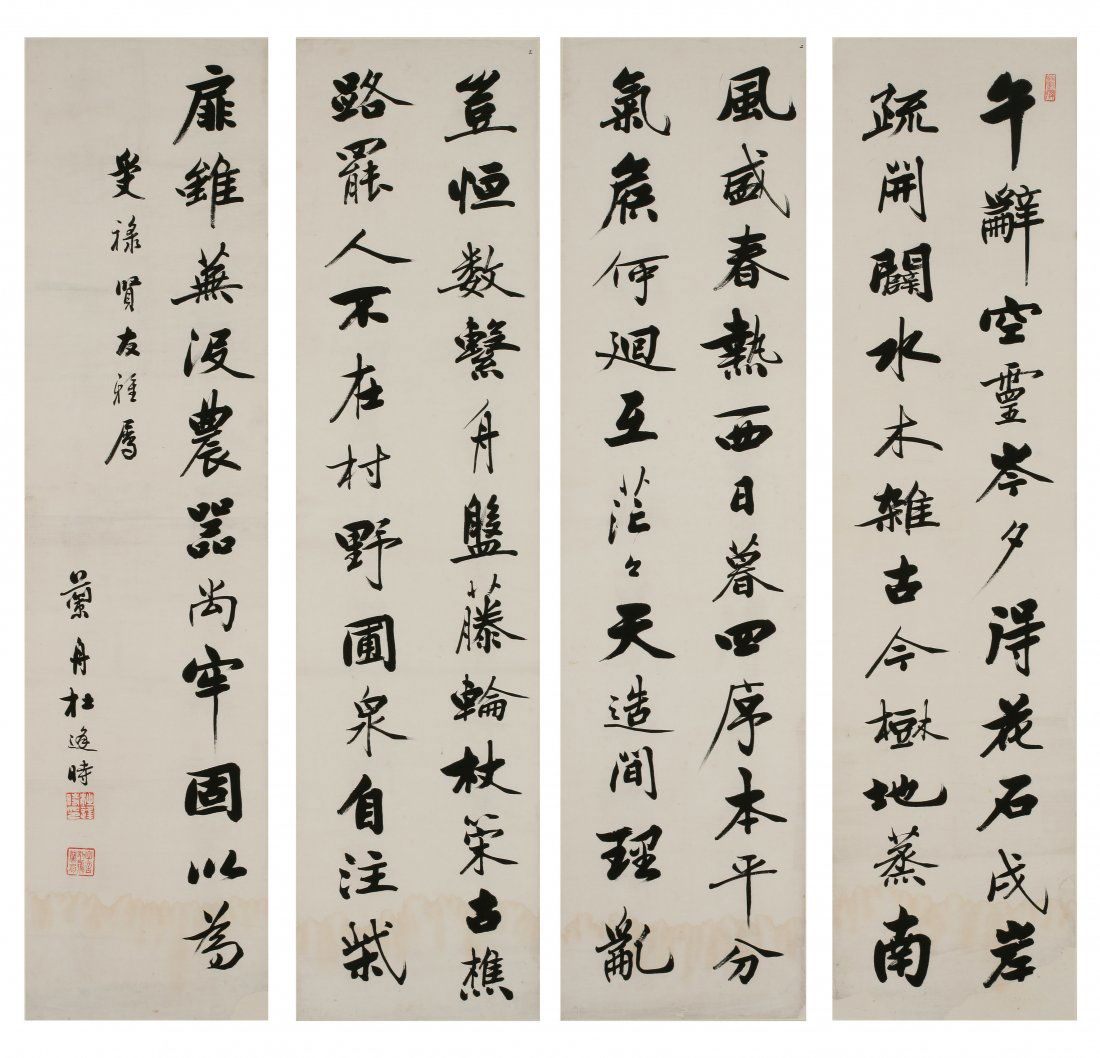 午辭空靈岑夕得花石戍岸
疏開闢水木雜古今樹地蒸南
風盛春熱西日暮四序本平分
氣候何迴互茫々天造間理亂
豈恒數繫舟盤藤輪杖策古樵
路罷人不在村野圃泉自注柴
扉雖蕪没農器尚牢固以為
受祿賢友雅屬
蘭舟杜逢時